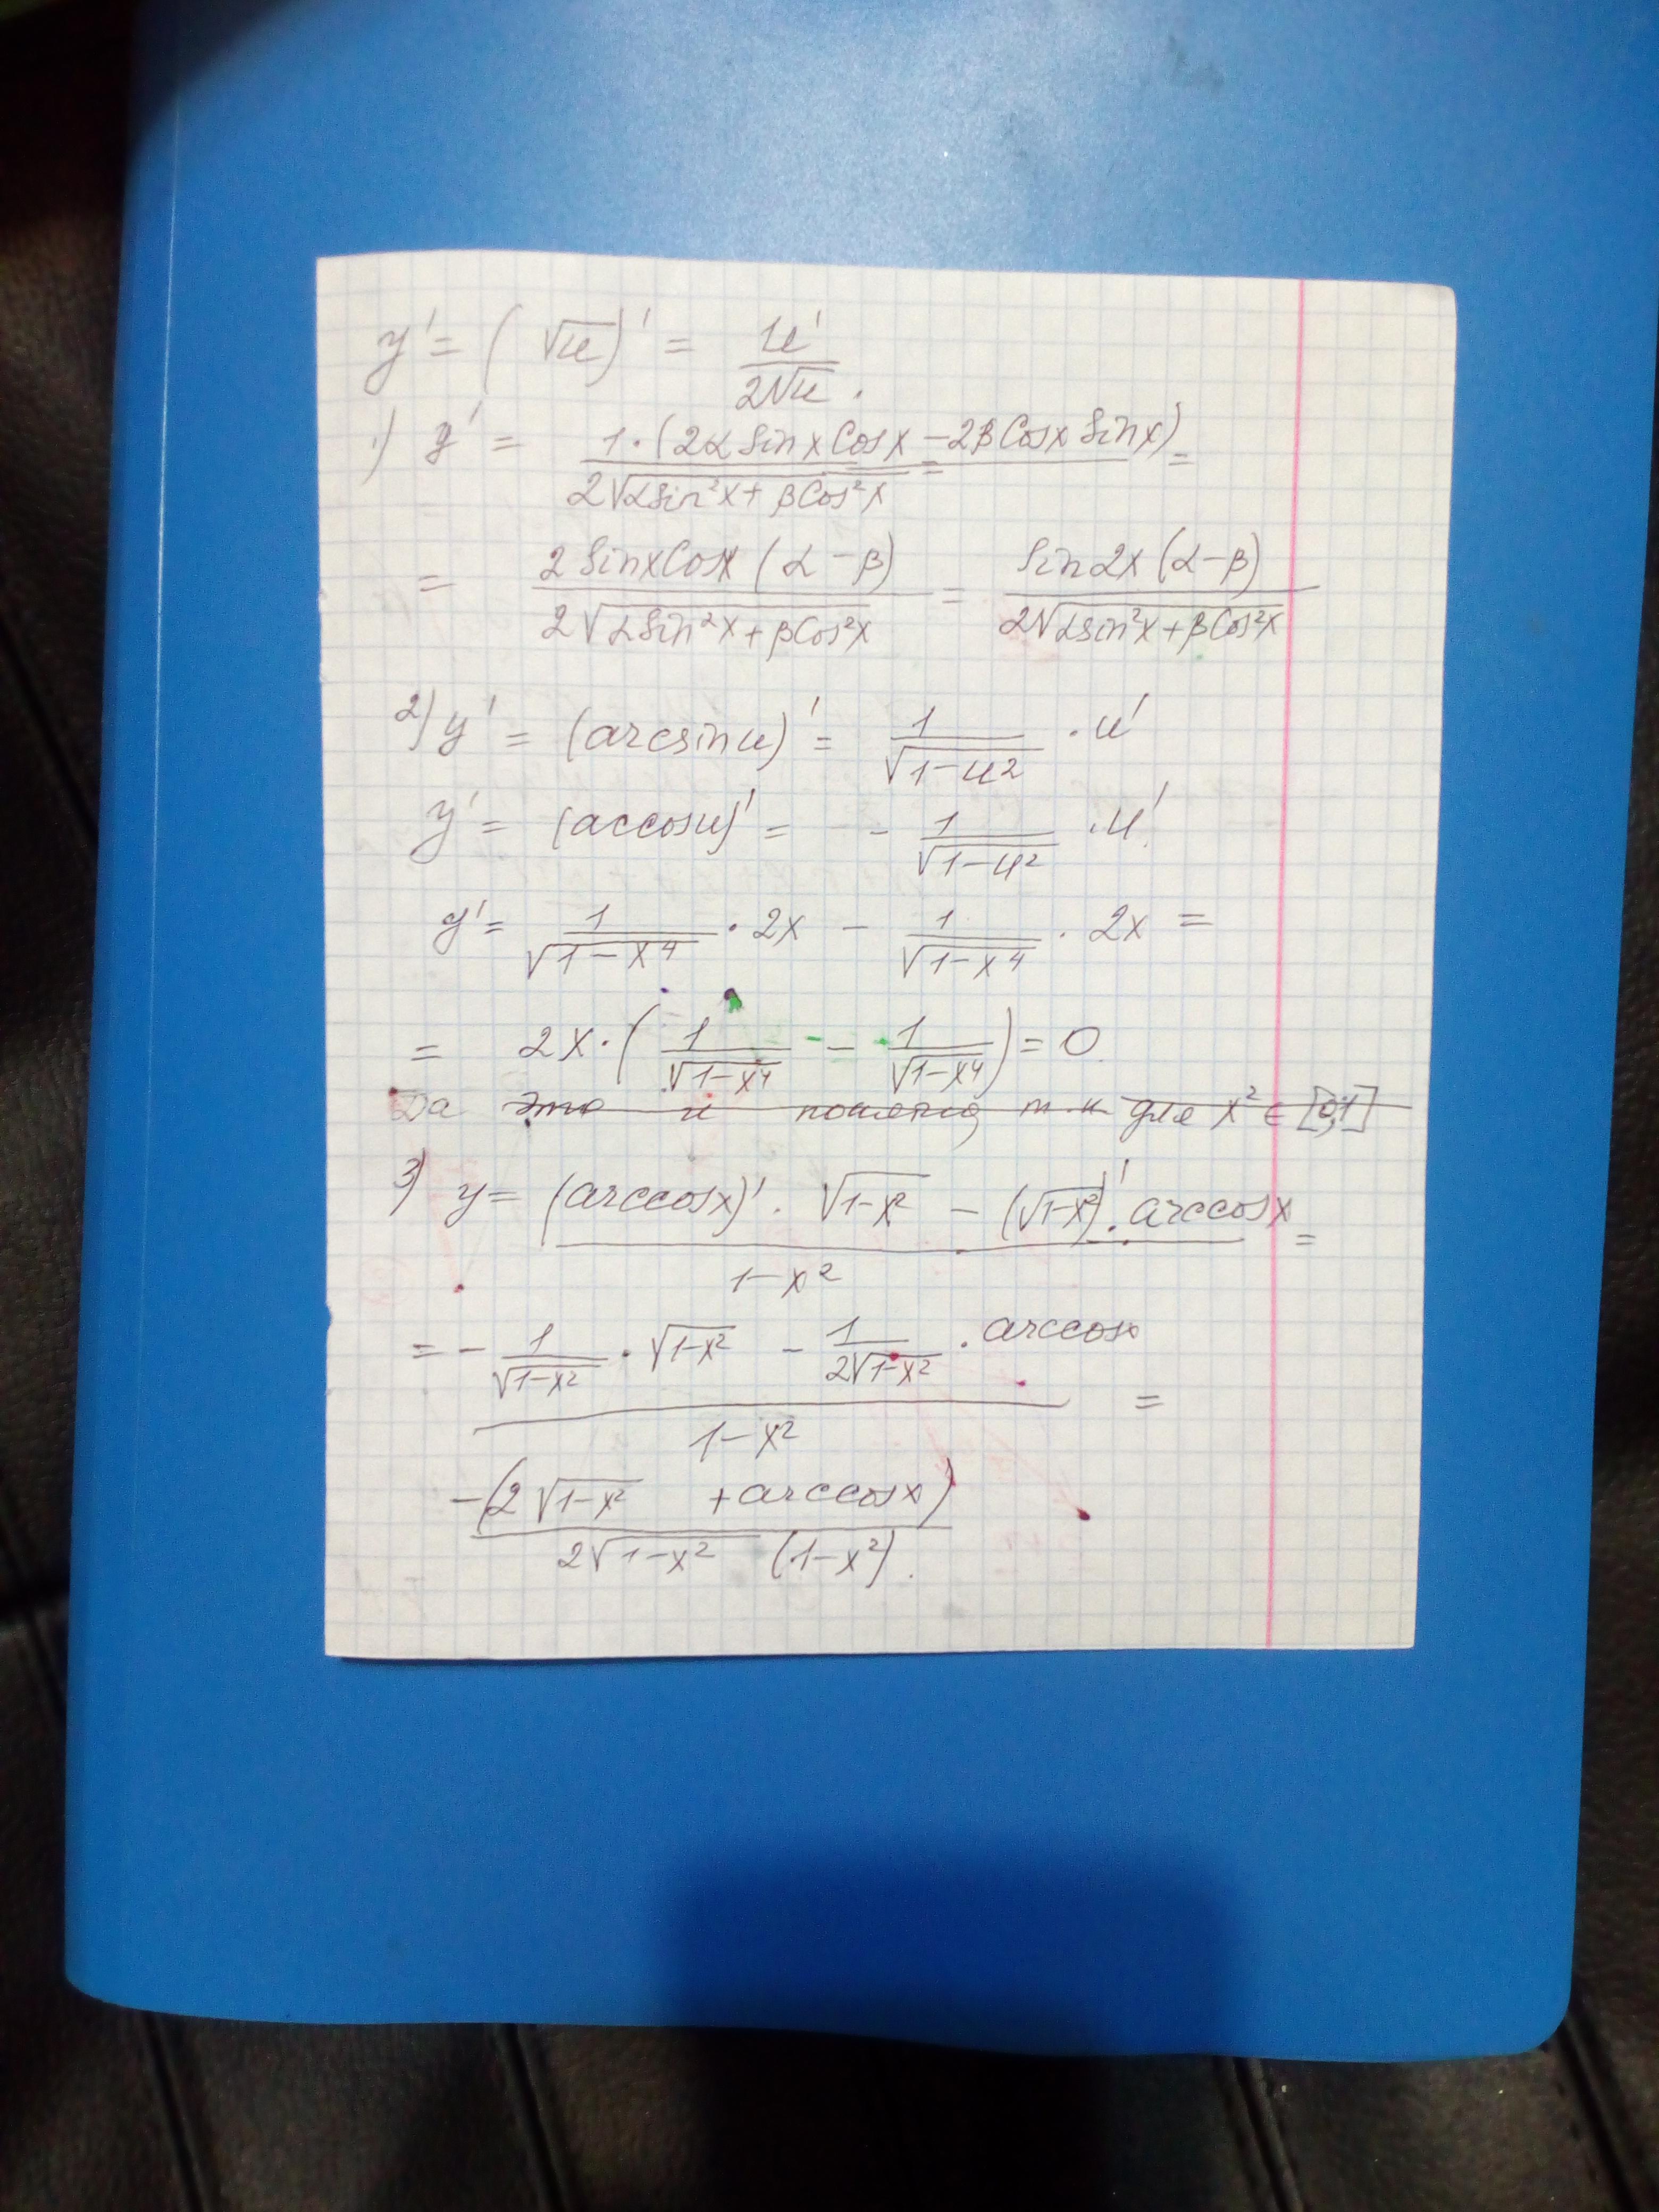 y' = (√u)' = 1u' / 2√u .
1) y' = 1·(2αSinxCosx − 2βCosxSinx) / 2√αSin²x + βCos²x =
= 2SinxCosx(α − β) / 2√αSin²x + βCos²x = Sin2x(α − β) / 2√αsin²x + βCos²x
2) y' = (arcsinu)' = 1 / √1−u² · u'
y' = (accosu)' = − 1 / √1−u² · u'.
y' = 1 / √1−x⁴ · 2x − 1 / √1−x⁴ · 2x =
= 2x·(1 / √1−x⁴ − 1 / √1−x⁴) = 0.
Да это и т.к для x² ∈ [0,1]
3) y = (arccosx)' · √1−x² − (√1−x²)' · arccosx / 1−x² =
= − 1 / √1−x² · √1−x² − 1 / 2√1−x² · arccosx / 1−x² =
−(2√1−x² + arccosx) / 2√1−x² (1−x²).